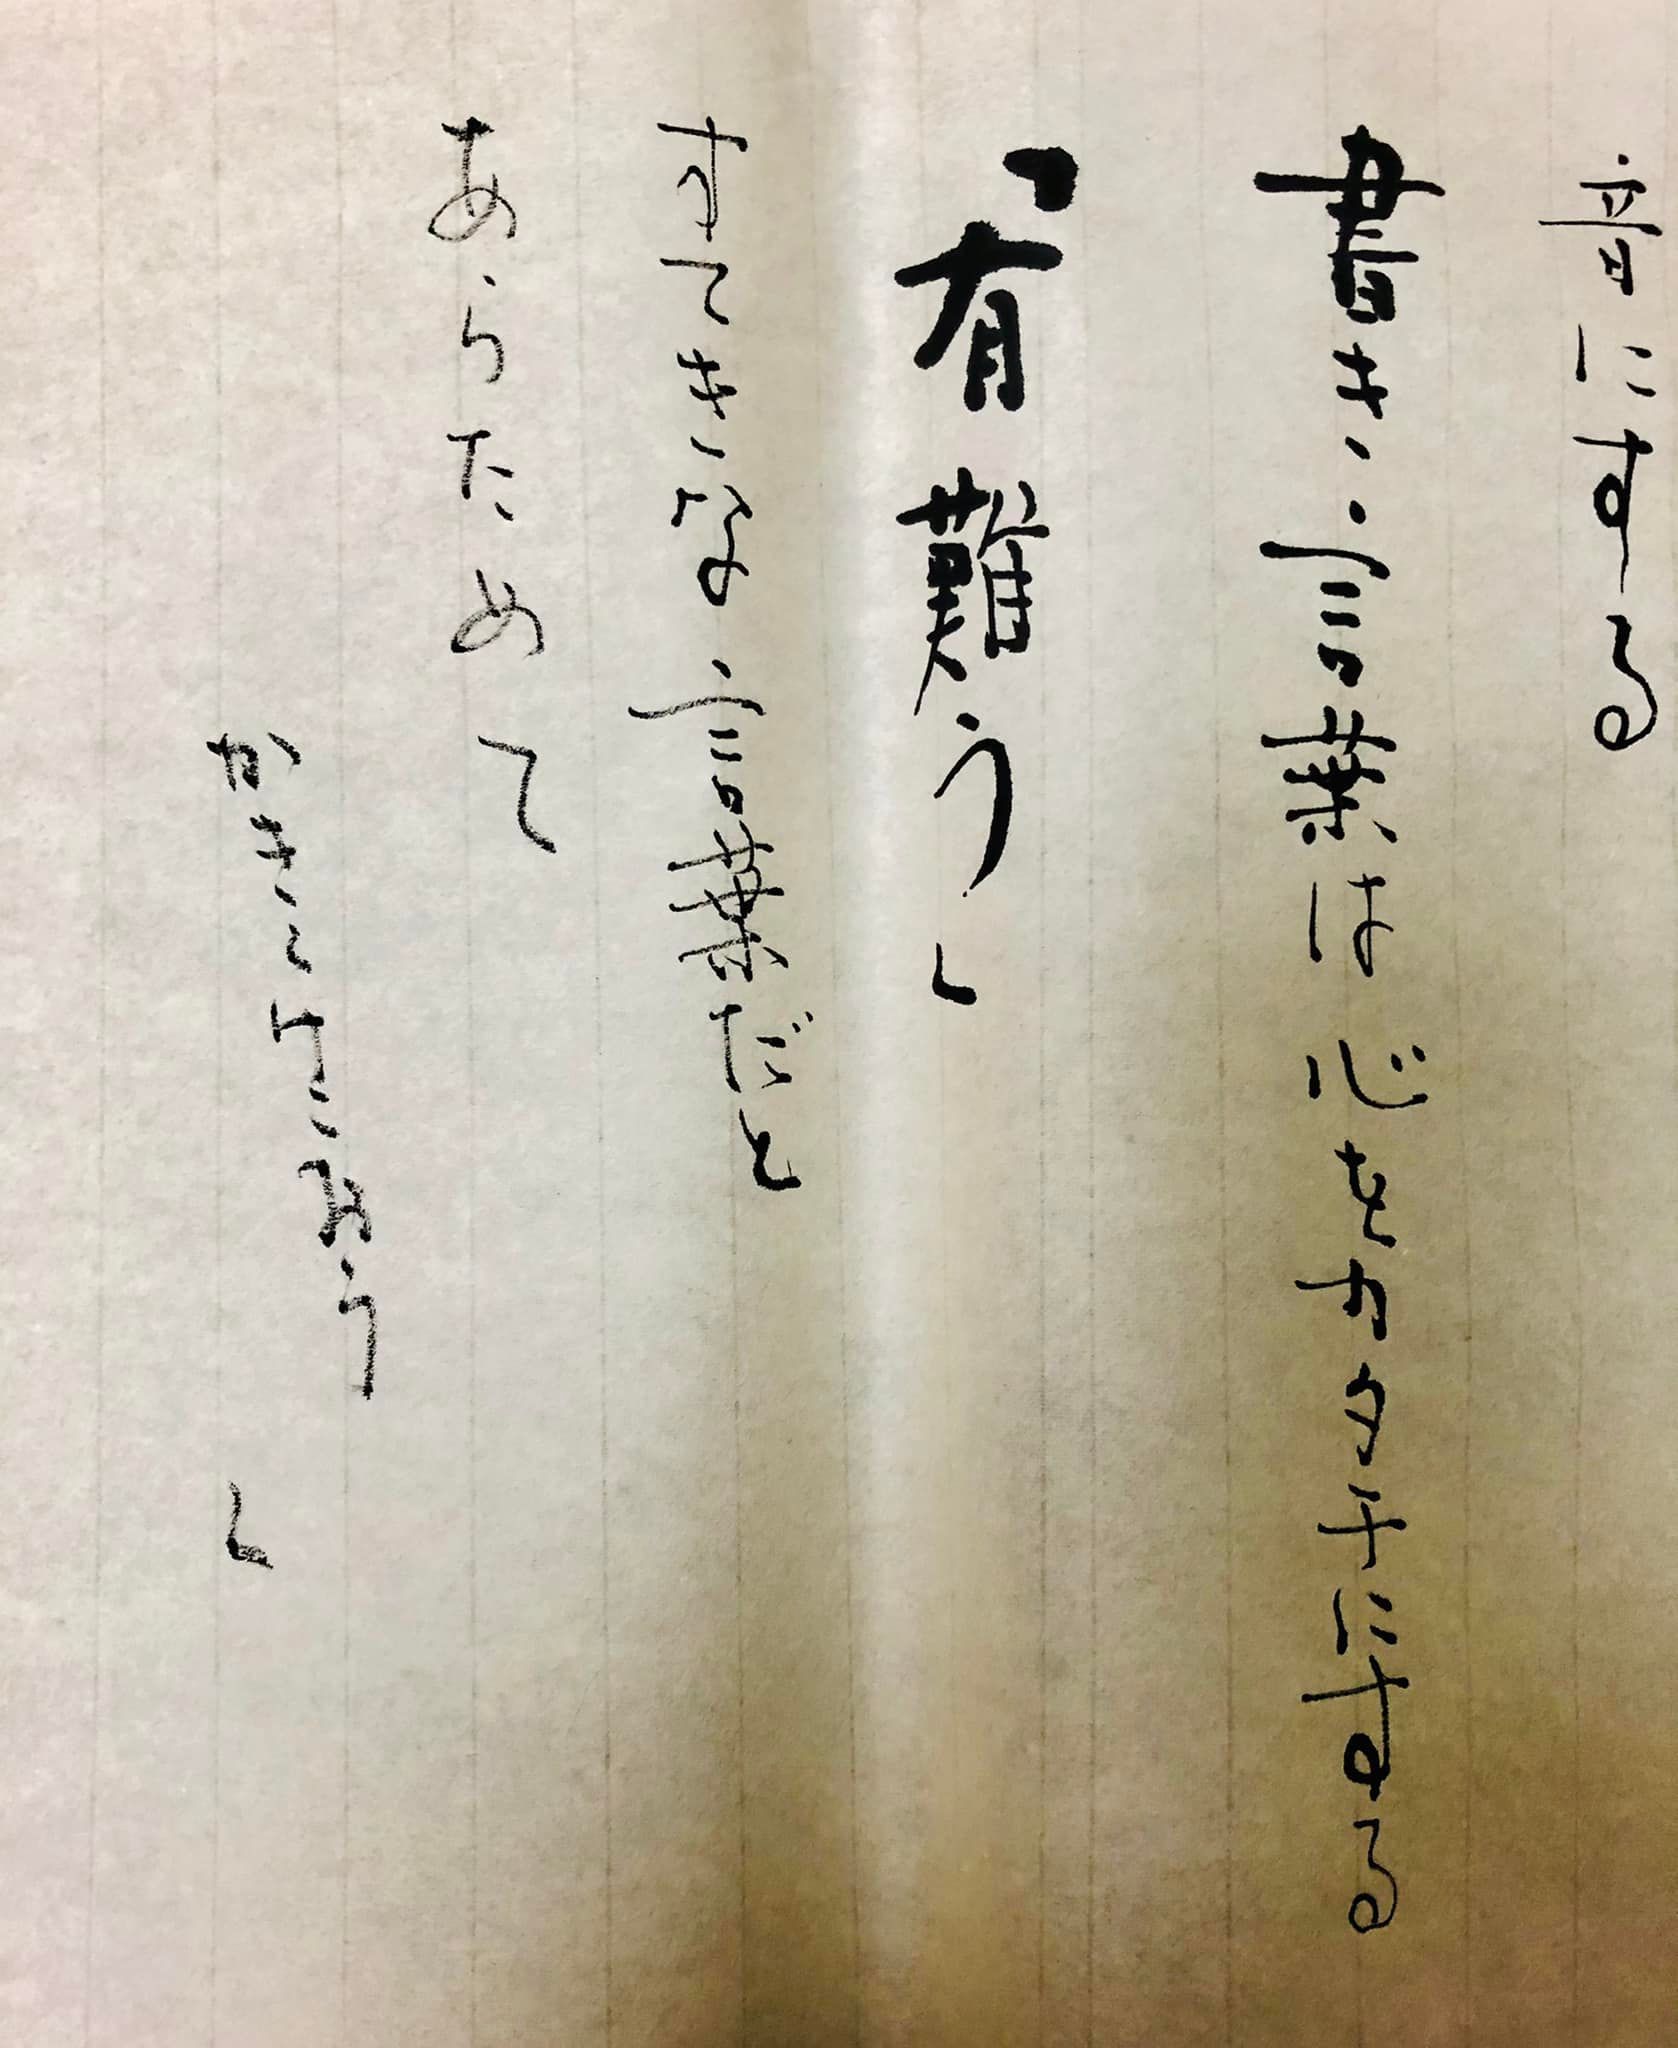 音にする
書き言葉は心をカタチにする
「有難う」
すてきな言葉だと
あらためて